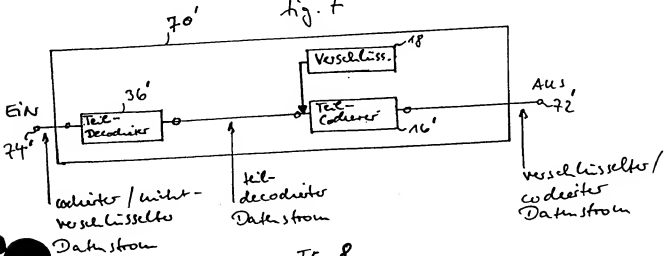 Fig. 7
70'
Verschlüss.
18
EIN
36'
AUS
Teil-
Decodierer
Teil-
Codierer
72'
74'
16'
codierter / nicht-
verschlüsselter
Datenstrom
teil-
decodierter
Datenstrom
verschlüsselter/
codierter
Datenstrom
Fig. 8